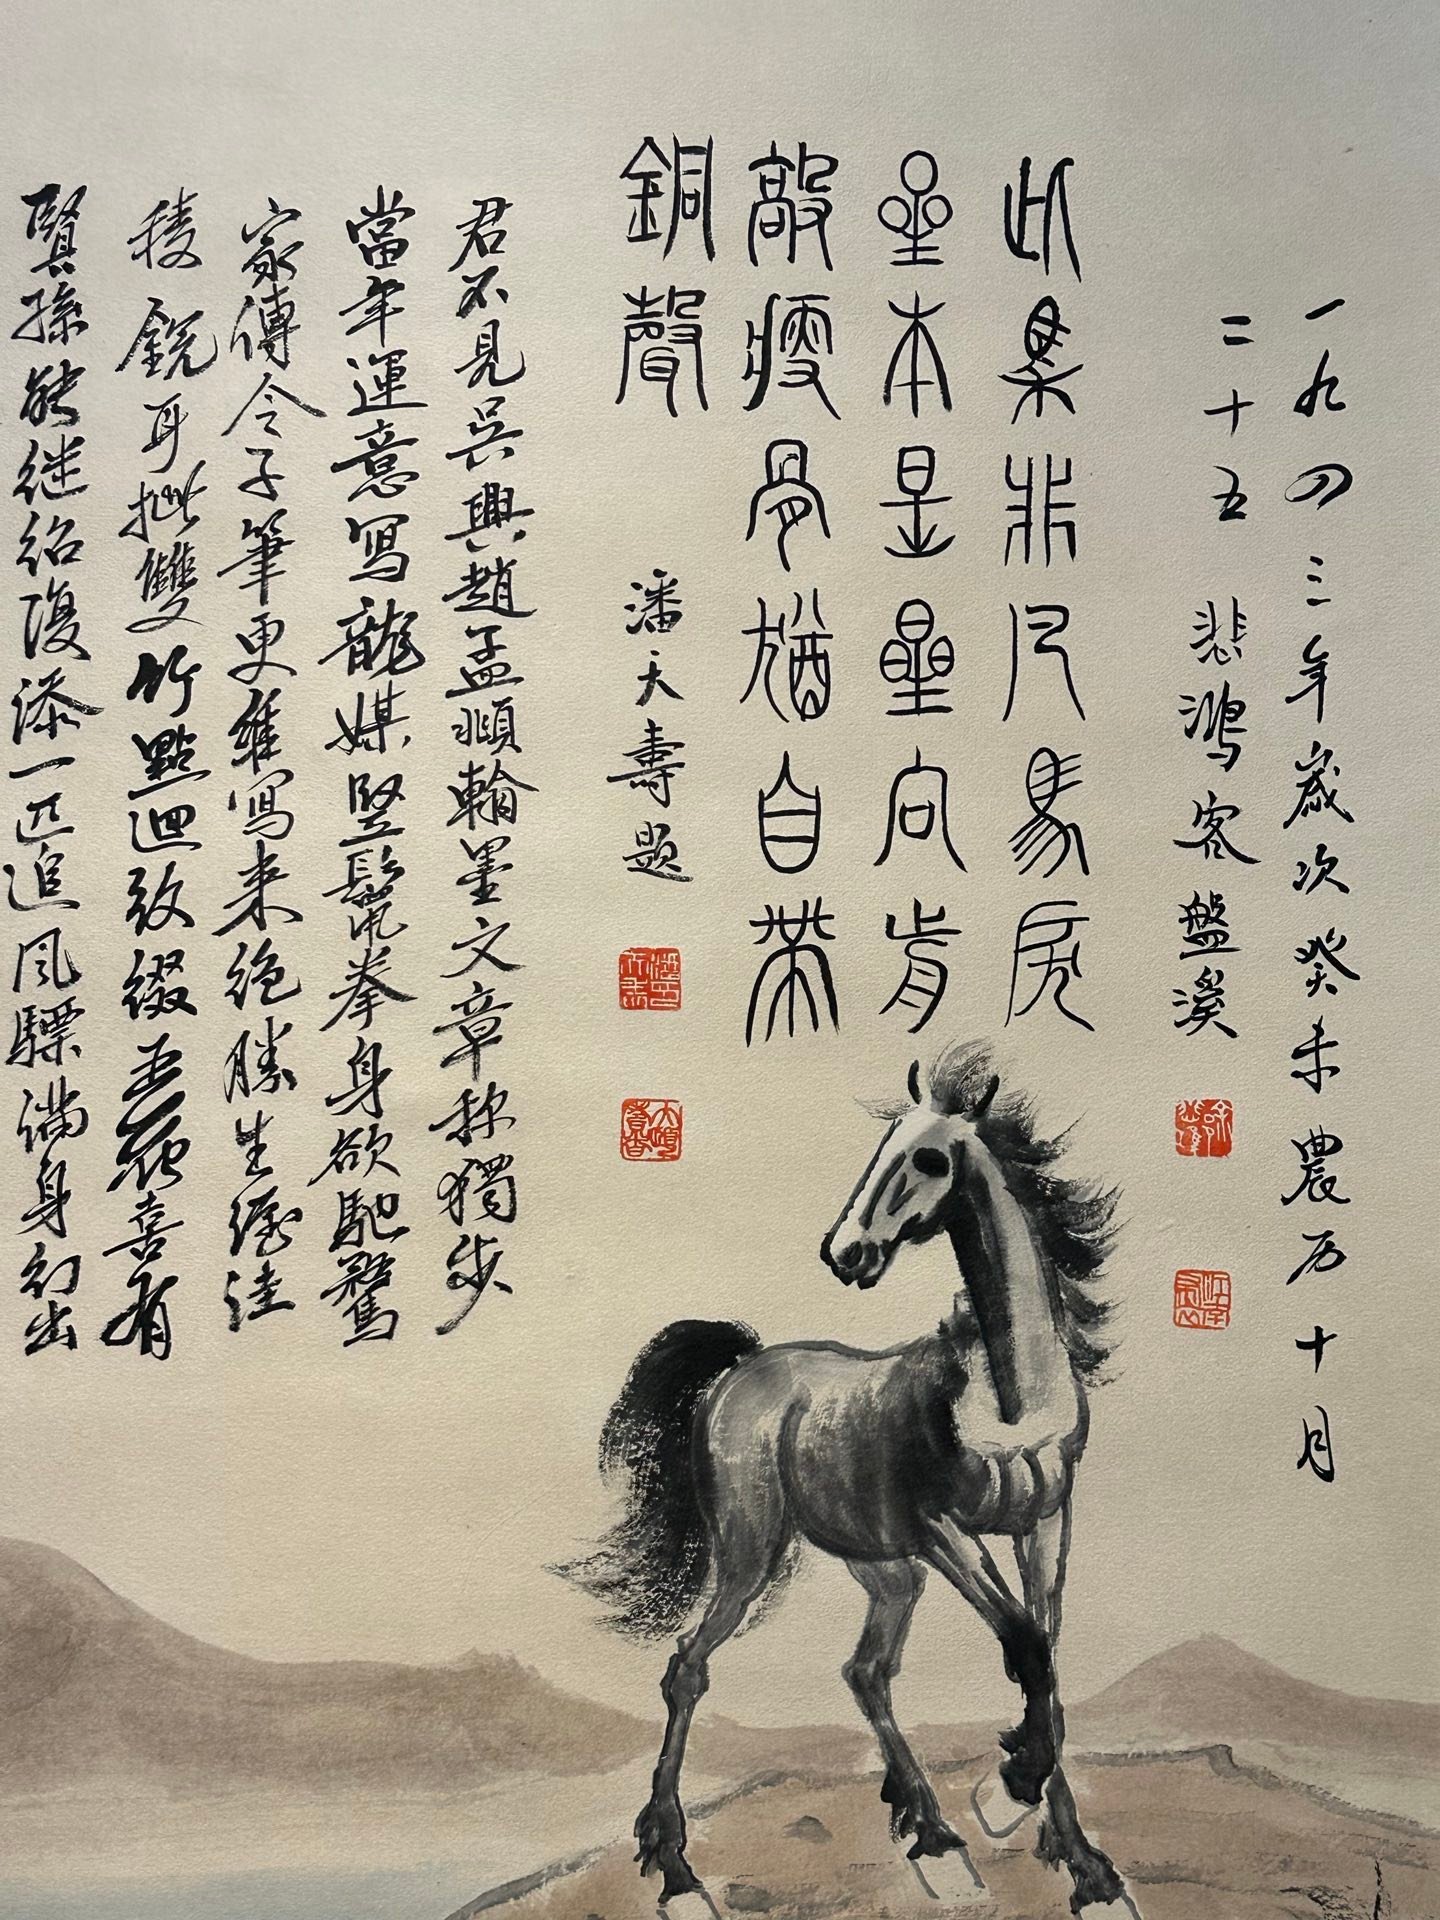 一九四三年歲次癸未農历十月
二十五 悲鴻客盤溪
此馬非凡馬房
星本是星向前
敲瘦骨猶自帶
銅聲
潘天壽題
君不見吳興趙孟頫翰墨文章称獨步
當年運意寫龍媒豎鬛拳身欲馳騖
家傳令子筆更維寫来絶勝生渥洼
稜鋭耳批雙竹點迴致綴五花喜有
賢孫能继紹復添一匹追风驃满身幻出